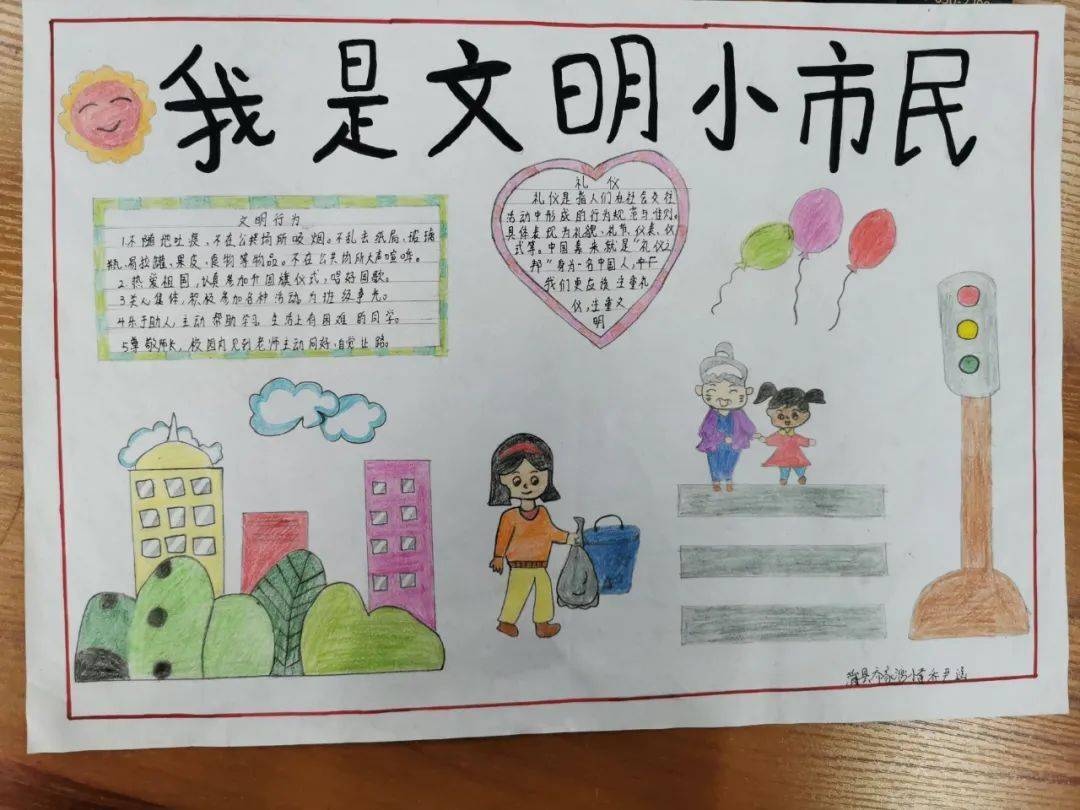 我是文明小市民
文明行为
1不随地吐痰、不在公共场所吸烟。不乱丢纸屑、玻璃
瓶、易拉罐、果皮、食物等物品。不在公共场所大声喧哗。
2.热爱祖国,认真参加升国旗仪式,唱好国歌。
3关心集体,积极参加各种活动,为班级争光。
4乐于助人,主动帮助学习、生活上有困难的同学。
5尊敬师长,校园内见到老师主动问好,自觉让路。
礼仪
礼仪是指人们在社会交往
活动中形成的行为规范与准则。
具体表现为礼貌、礼节、仪表、仪
式等。中国素来就是“礼仪之
邦”身为一名中国人,
我们更应该注重礼
仪,注重文
明